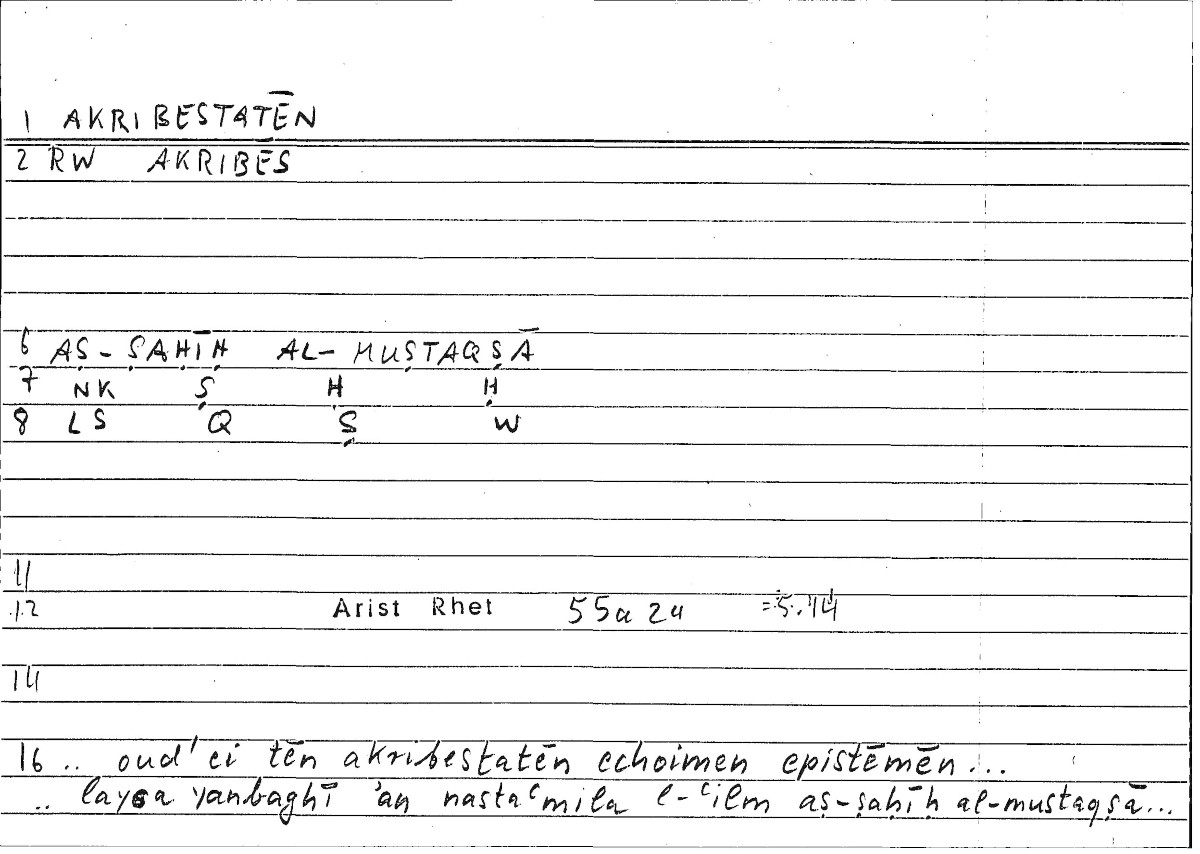 1 AKRIBESTATĒN
2 RW AKRIBĒS
6 AṢ-ṢAḤĪḤ AL-MUṢTAQṢĀ
7 NK Ṣ H Ḥ
8 LS Q Ṣ W
11
12 Arist Rhet 55a24 =5.14
14
16 .. oud' ei tēn akribestatēn echoimen epistēmēn...
.. laysa yanbaghī 'an nastaʿmila l-ʿilm aṣ-ṣaḥīḥ al-mustaqṣā...